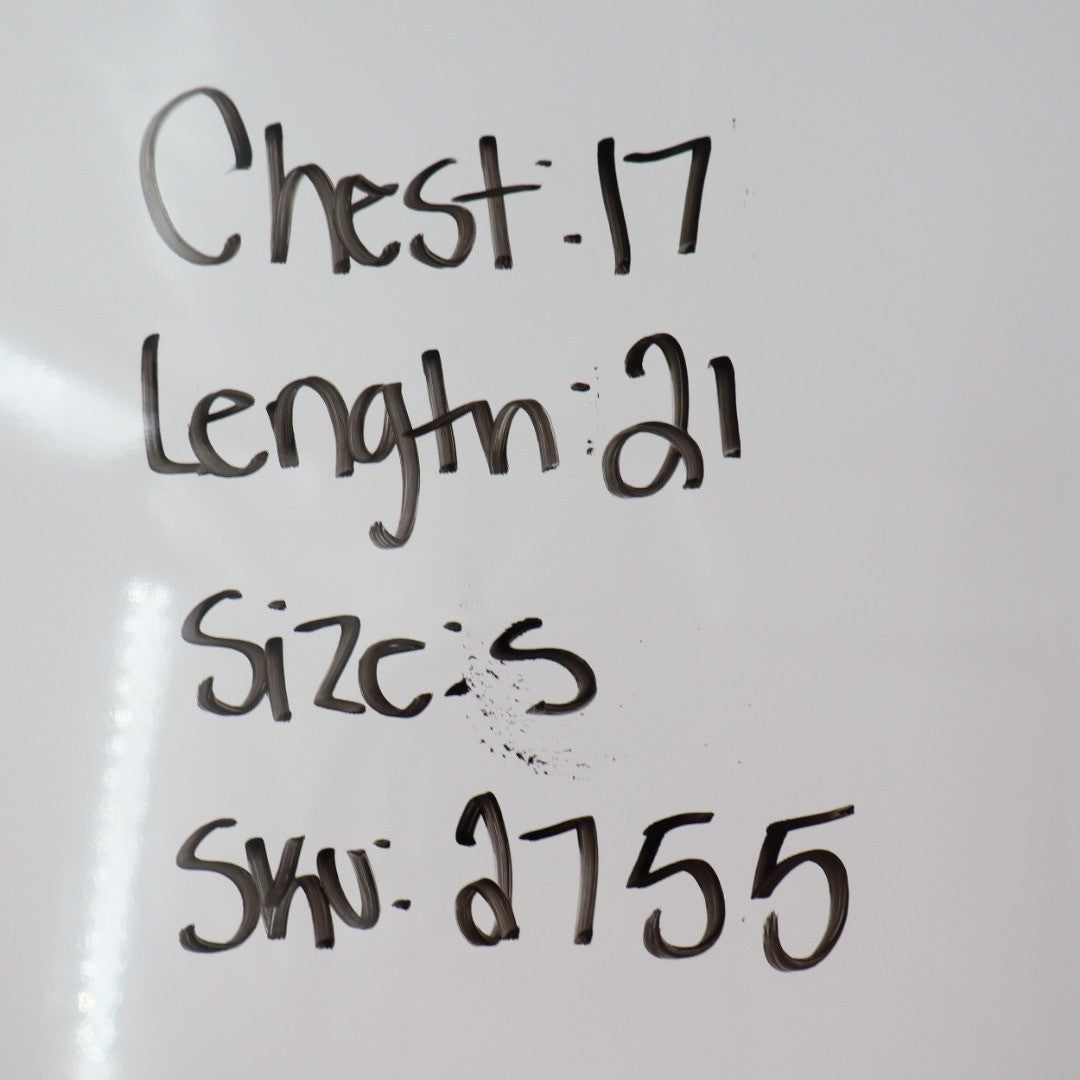 Chest: 17
Length: 21
Size: S
SKU: 2755